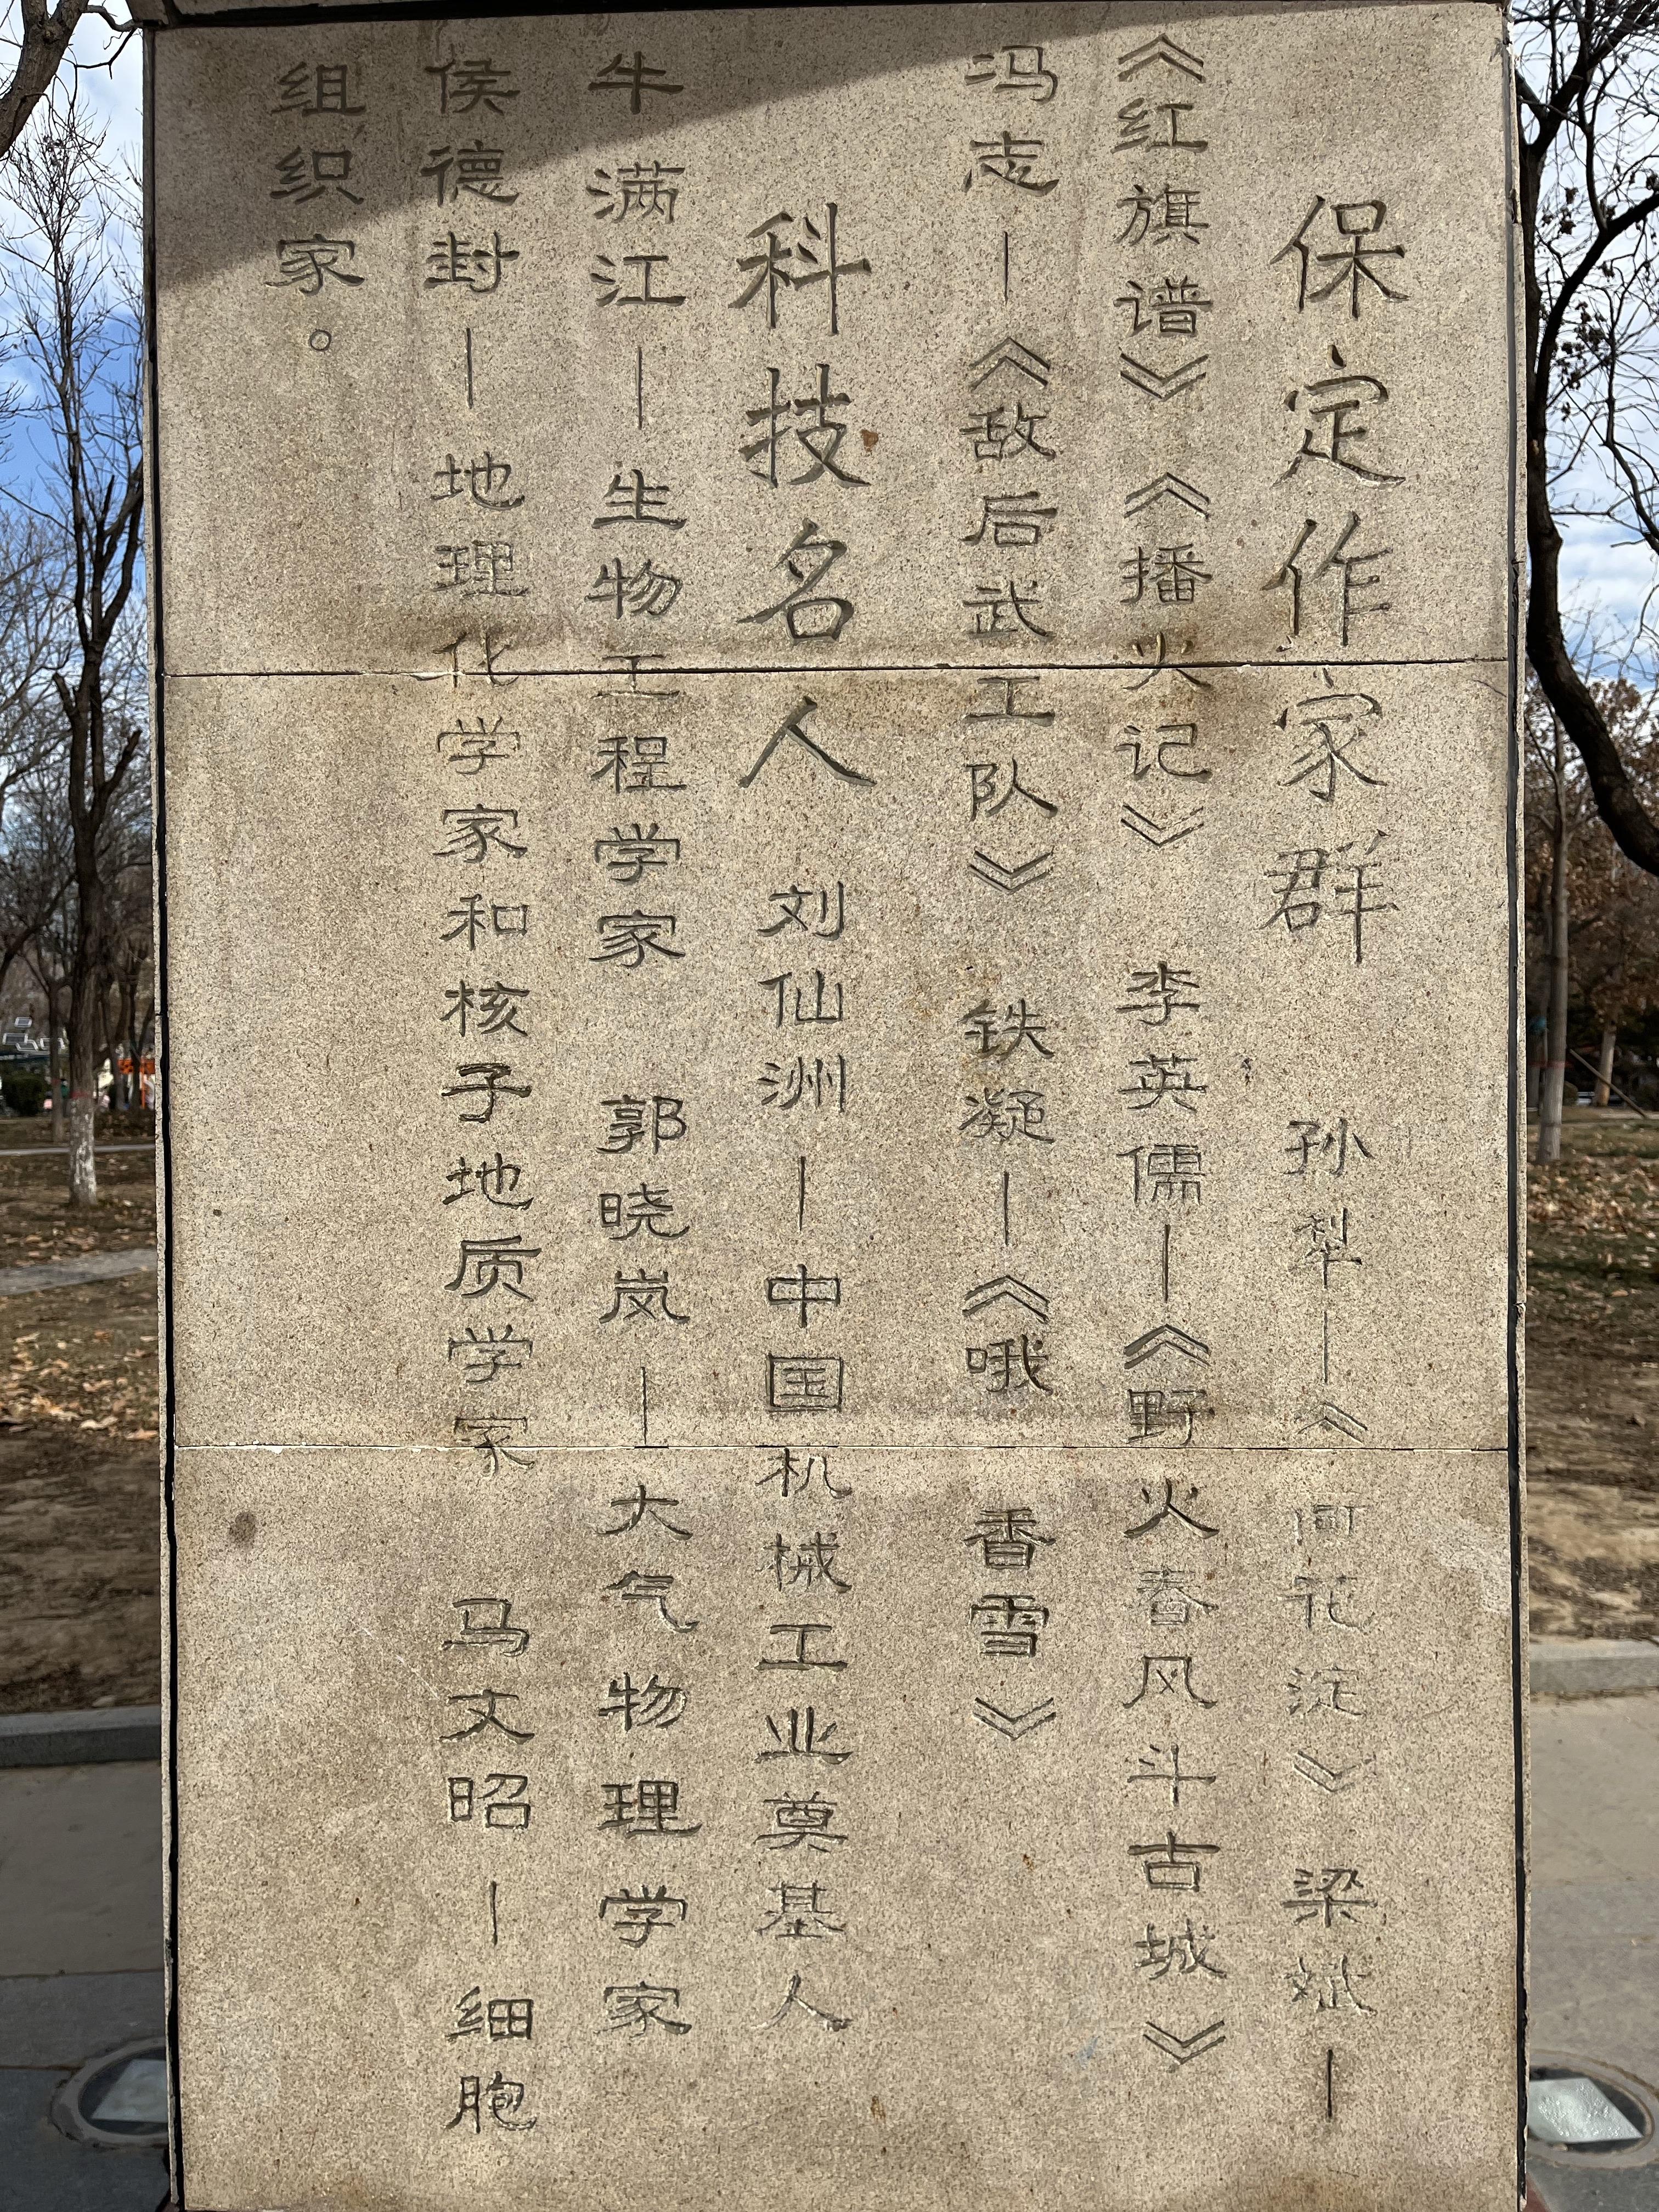 保定作家群 孙犁—《荷花淀》梁斌—
《红旗谱》《播火记》 李英儒—《野火春风斗古城》
冯志—《敌后武工队》 铁凝—《哦 香雪》
科技名人 刘仙洲—中国机械工业奠基人
牛满江—生物工程学家 郭晓岚—大气物理学家
侯德封—地理化学家和核子地质学家 马文昭—细胞
组织家。